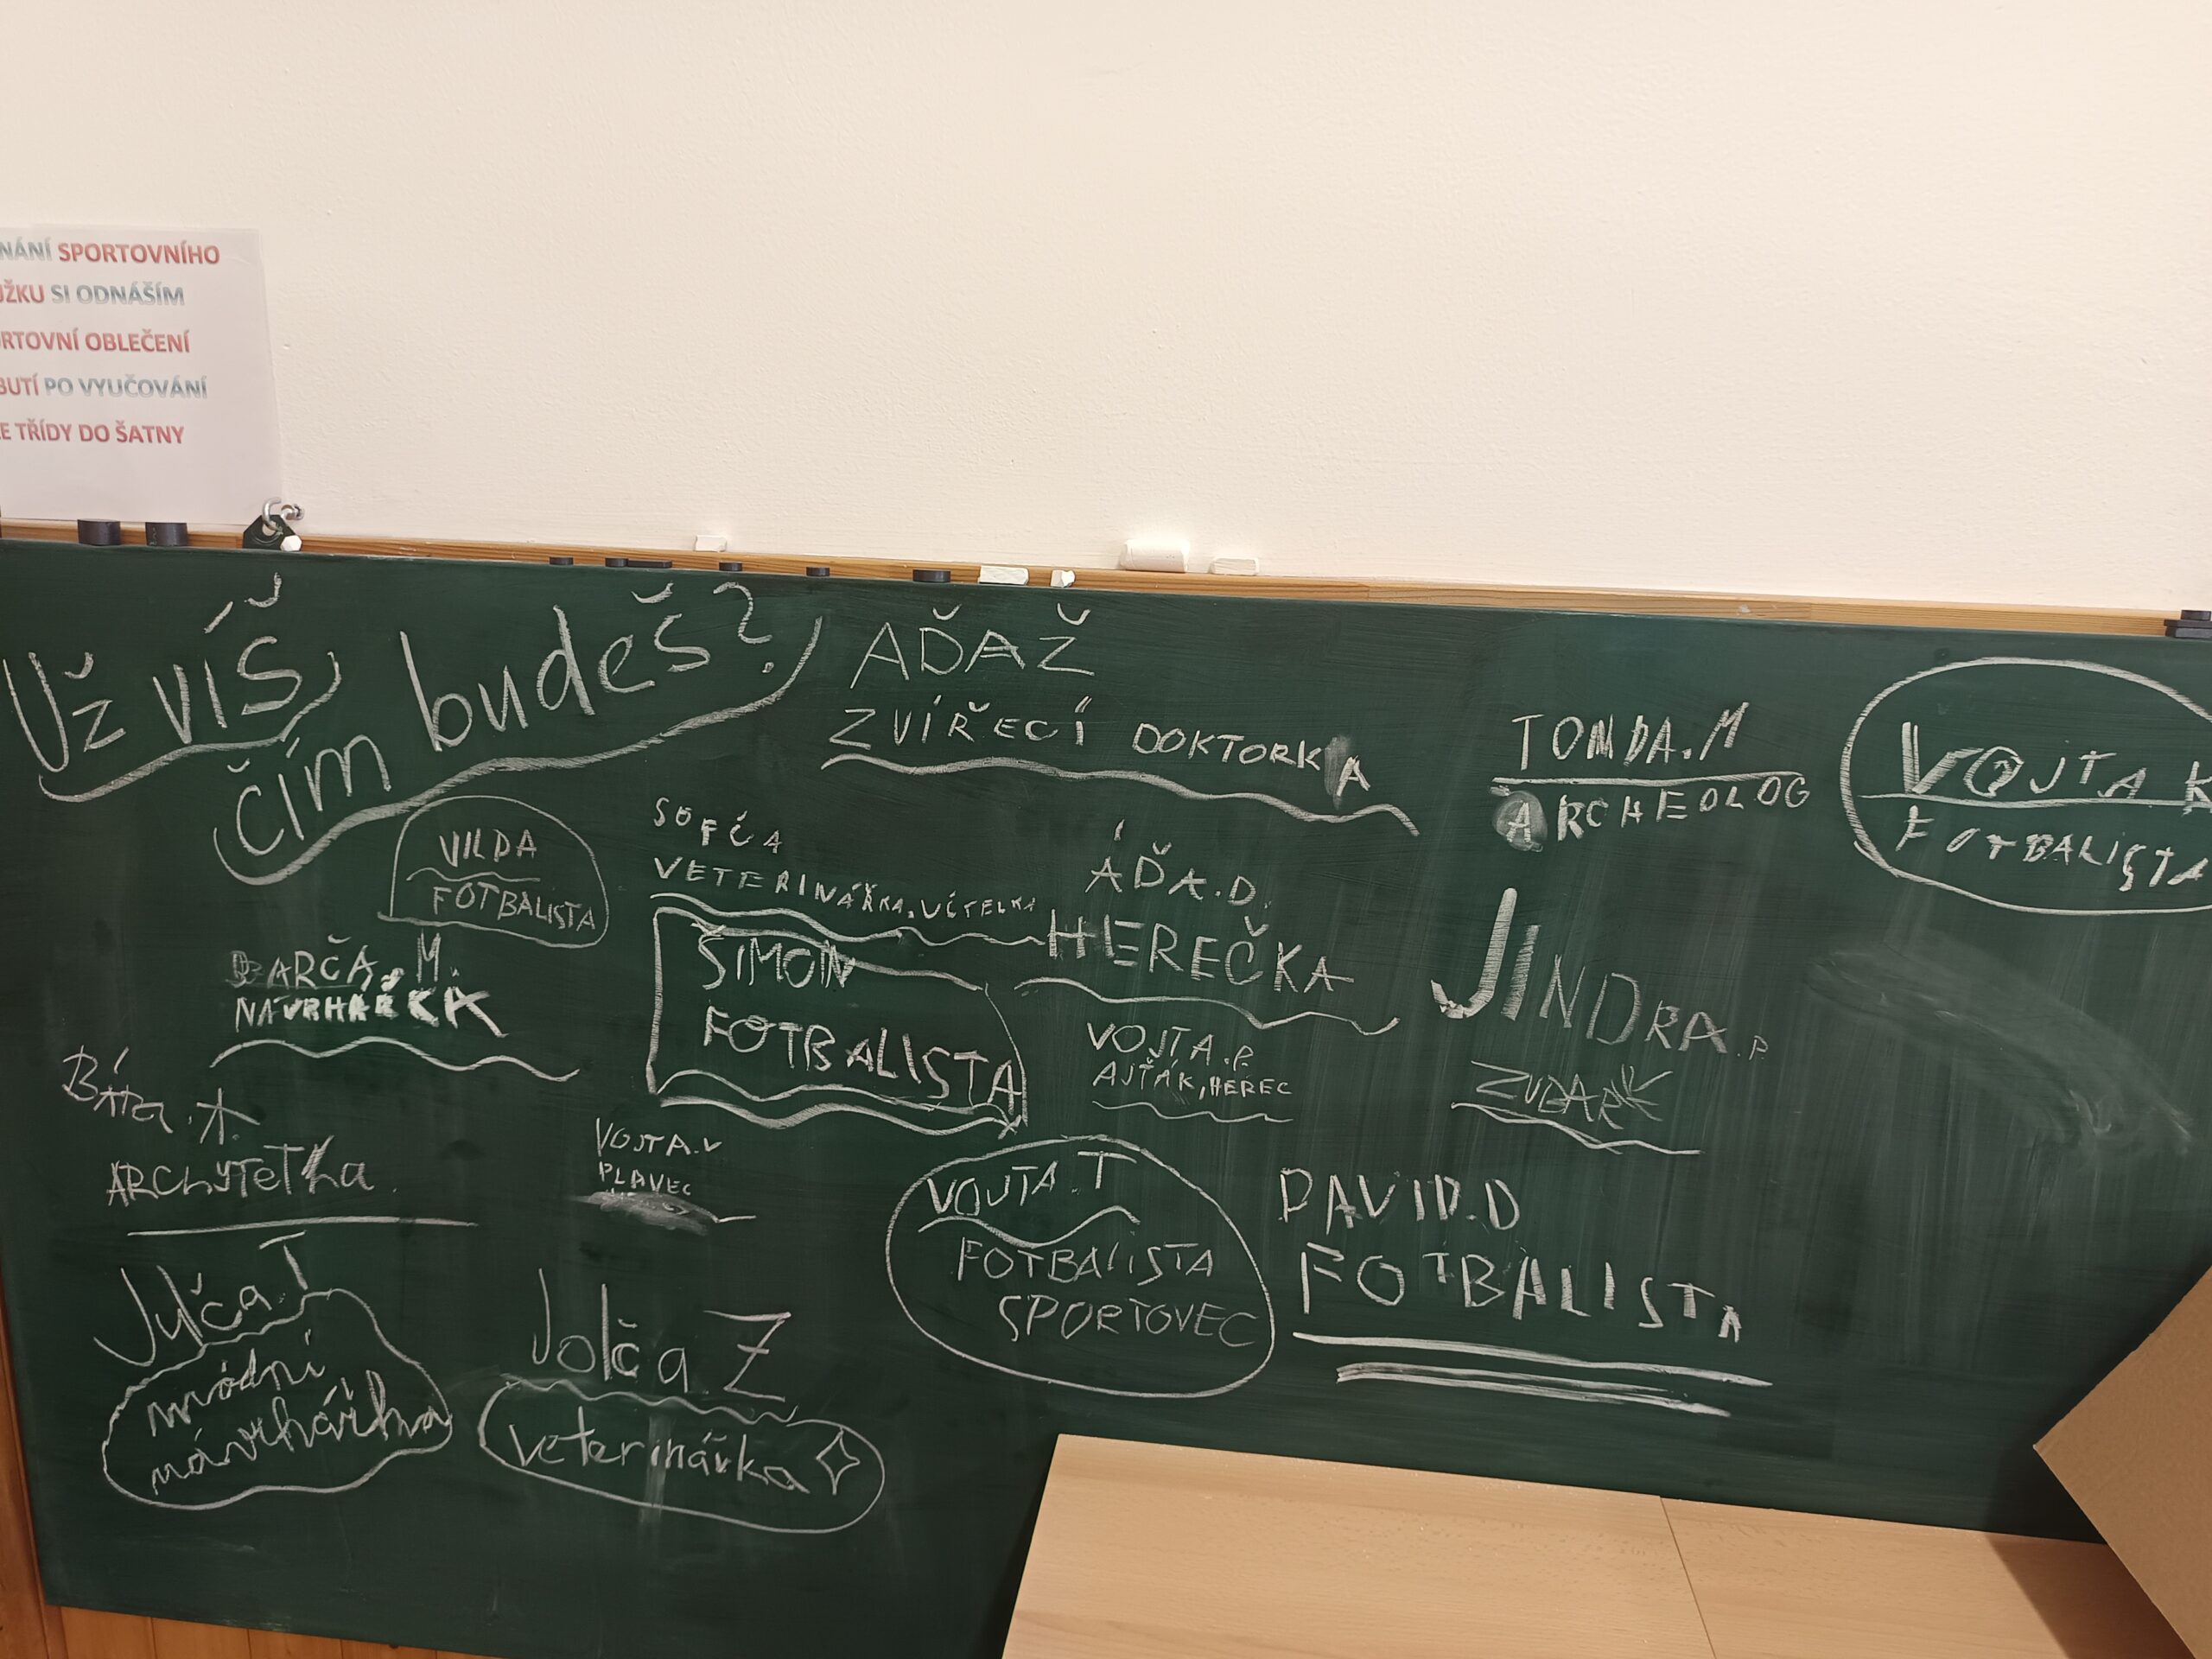 NÁNÍ SPORTOVNÍHO
UŽKU SI ODNÁŠÍM
RTOVNÍ OBLEČENÍ
BUTÍ PO VYUČOVÁNÍ
E TŘÍDY DO ŠATNY
Už víš,
čím budeš?
AĎAŽ
ZVÍŘECÍ DOKTORKA
TONDA.M
ARCHEOLOG
VOJTA K
FOTBALISTA
VILDA
FOTBALISTA
SOFČA
VETERINÁŘKA, UČITELKA
ÁĎA.D.
HEREČKA
BARČA. M.
NÁVRHÁŘKA
ŠIMON
FOTBALISTA
VOJTA.P.
AJŤÁK, HEREC
JINDRA.P
ZUBAR
Bára.
ARChYTeTka.
VOJTA.V
PLAVEC
VOJTA.T
FOTBALISTA
SPORTOVEC
DAVID.D
FOTBALISTA
Julča.T
módní
návrhářka
Jolča.Z
veterinářka